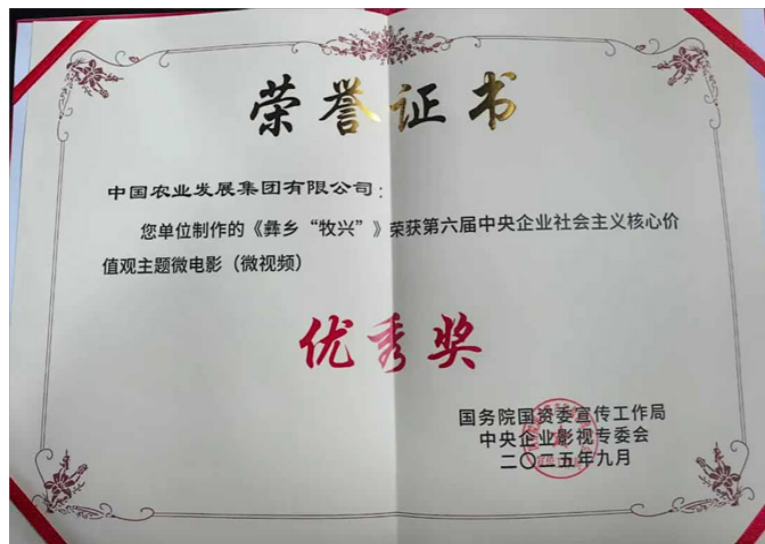 荣誉证书
中国农业发展集团有限公司：
您单位制作的《彝乡“牧兴”》荣获第六届中央企业社会主义核心价
值观主题微电影（微视频）
优秀奖
国务院国资委宣传工作局
中央企业影视专委会
二〇二五年九月